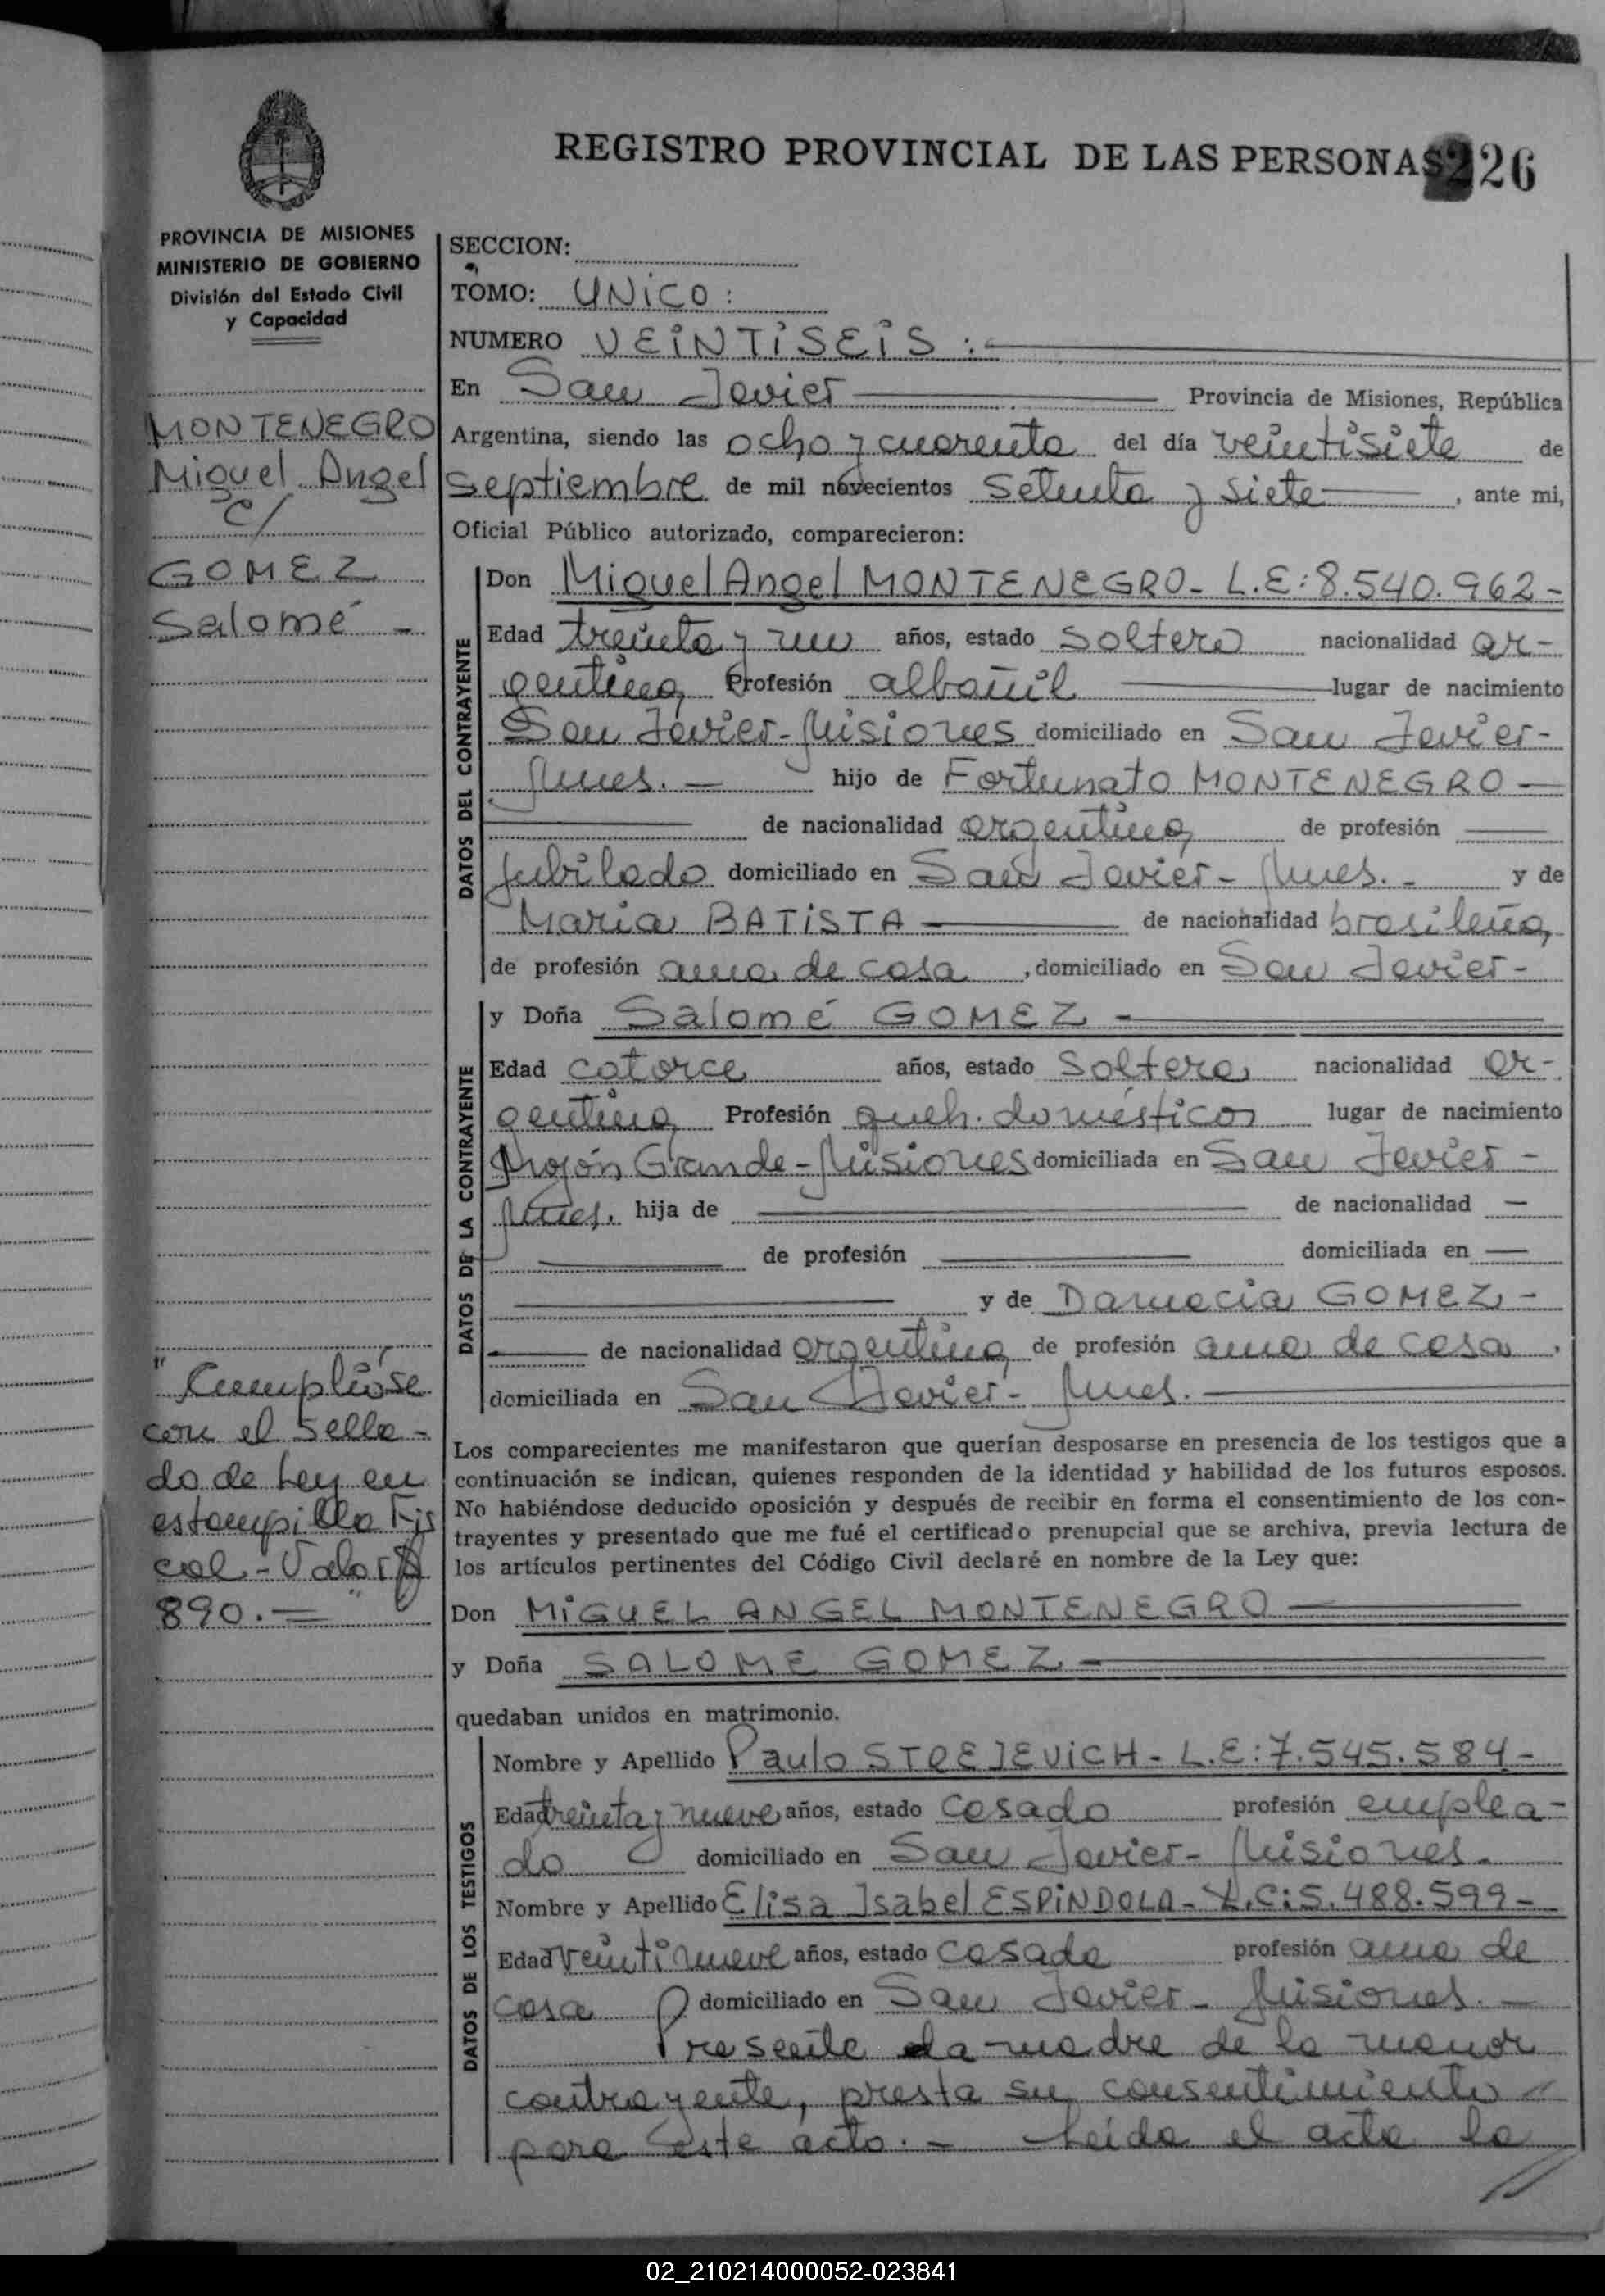 REGISTRO PROVINCIAL DE LAS PERSONAS 226
PROVINCIA DE MISIONES
MINISTERIO DE GOBIERNO
División del Estado Civil
y Capacidad
MONTENEGRO
Miguel Angel
c/
GOMEZ
Salomé -
"Cumplióse
con el sella-
do de Ley en
estampilla Fis
cal - Valor $
890.= "
SECCION:
TOMO: UNICO:
NUMERO VEINTISEIS :-
En San Javier Provincia de Misiones, República
Argentina, siendo las ocho y cuarenta del día veintisiete de
septiembre de mil novecientos setenta y siete , ante mi,
Oficial Público autorizado, comparecieron:
DATOS DEL CONTRAYENTE
Don Miguel Angel MONTENEGRO - L.E: 8.540.962 -
Edad treinta y un años, estado soltero nacionalidad ar-
gentina Profesión albañil lugar de nacimiento
San Javier - Misiones domiciliado en San Javier -
Mnes. - hijo de Fortunato MONTENEGRO -
de nacionalidad argentina de profesión
jubilado domiciliado en San Javier - Mnes. - y de
Maria BATISTA de nacionalidad brasileña,
de profesión ama de casa , domiciliado en San Javier -
DATOS DE LA CONTRAYENTE
y Doña Salomé GOMEZ -
Edad catorce años, estado soltera nacionalidad ar-
gentina Profesión queh. domésticos lugar de nacimiento
Mojón Grande - Misiones domiciliada en San Javier -
Mnes. hija de — de nacionalidad —
— de profesión — domiciliada en —
— y de Damacia GOMEZ -
— de nacionalidad argentina de profesión ama de casa ,
domiciliada en San Javier - Mnes. -
Los comparecientes me manifestaron que querían desposarse en presencia de los testigos que a
continuación se indican, quienes responden de la identidad y habilidad de los futuros esposos.
No habiéndose deducido oposición y después de recibir en forma el consentimiento de los con-
trayentes y presentado que me fué el certificado prenupcial que se archiva, previa lectura de
los artículos pertinentes del Código Civil declaré en nombre de la Ley que:
Don MIGUEL ANGEL MONTENEGRO
y Doña SALOME GOMEZ -
quedaban unidos en matrimonio.
DATOS DE LOS TESTIGOS
Nombre y Apellido Paulo STREJEVICH - L.E: 7.545.584 -
Edad treinta y nueve años, estado casado profesión emplea-
do domiciliado en San Javier - Misiones.
Nombre y Apellido Elisa Isabel ESPINDOLA - L.C: 5.488.599 -
Edad veintinueve años, estado casada profesión ama de
casa domiciliado en San Javier - Misiones. -
Presente la madre de la menor
contrayente, presta su consentimiento
para este acto. - Leída el acta la
//
02_210214000052-023841